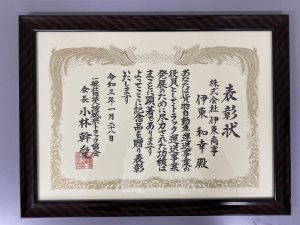 表彰状
株式会社 伊東商事
伊東 和幸 殿
あなたは貨物自動車運送事業の
役員としてトラック運送事業
発展のために尽力された功績は
まことに顕著であります
よってここに記念品を贈り表彰
いたします
令和三年一月二十八日
一般社団法人
トラック協会
会長 小林 幹愛